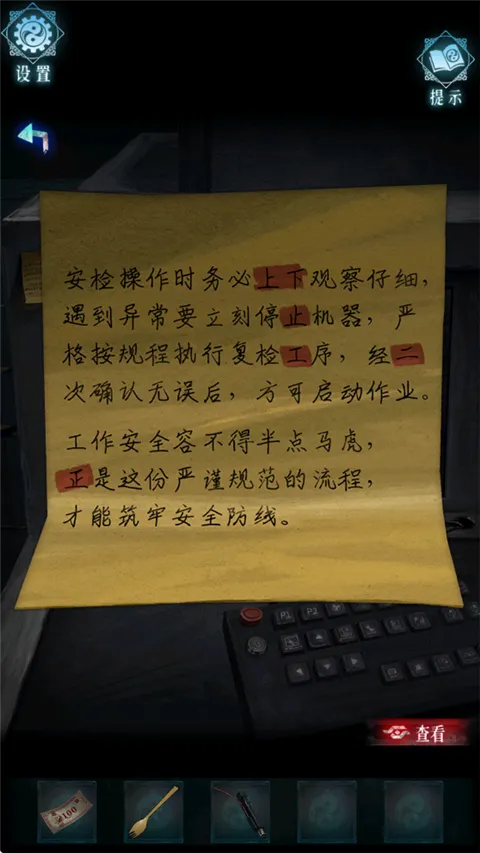 设置
提示
安检操作时务必上下观察仔细，
遇到异常要立刻停止机器，严
格按规程执行复检工序，经二
次确认无误后，方可启动作业。
工作安全容不得半点马虎，
正是这份严谨规范的流程，
才能筑牢安全防线。
P1 P2
查看
100